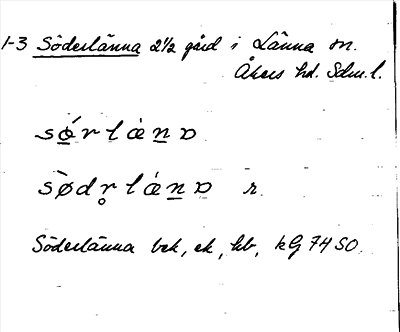 1-3 Söderlänna 2½ gård i Länna sn.
Åkers hd. Sdm. l.
sǿ̱rlàṉɒ
sø̀dr̥láṉɒ r.
Söderlänna bek, ek, hb, kG 74 SO.